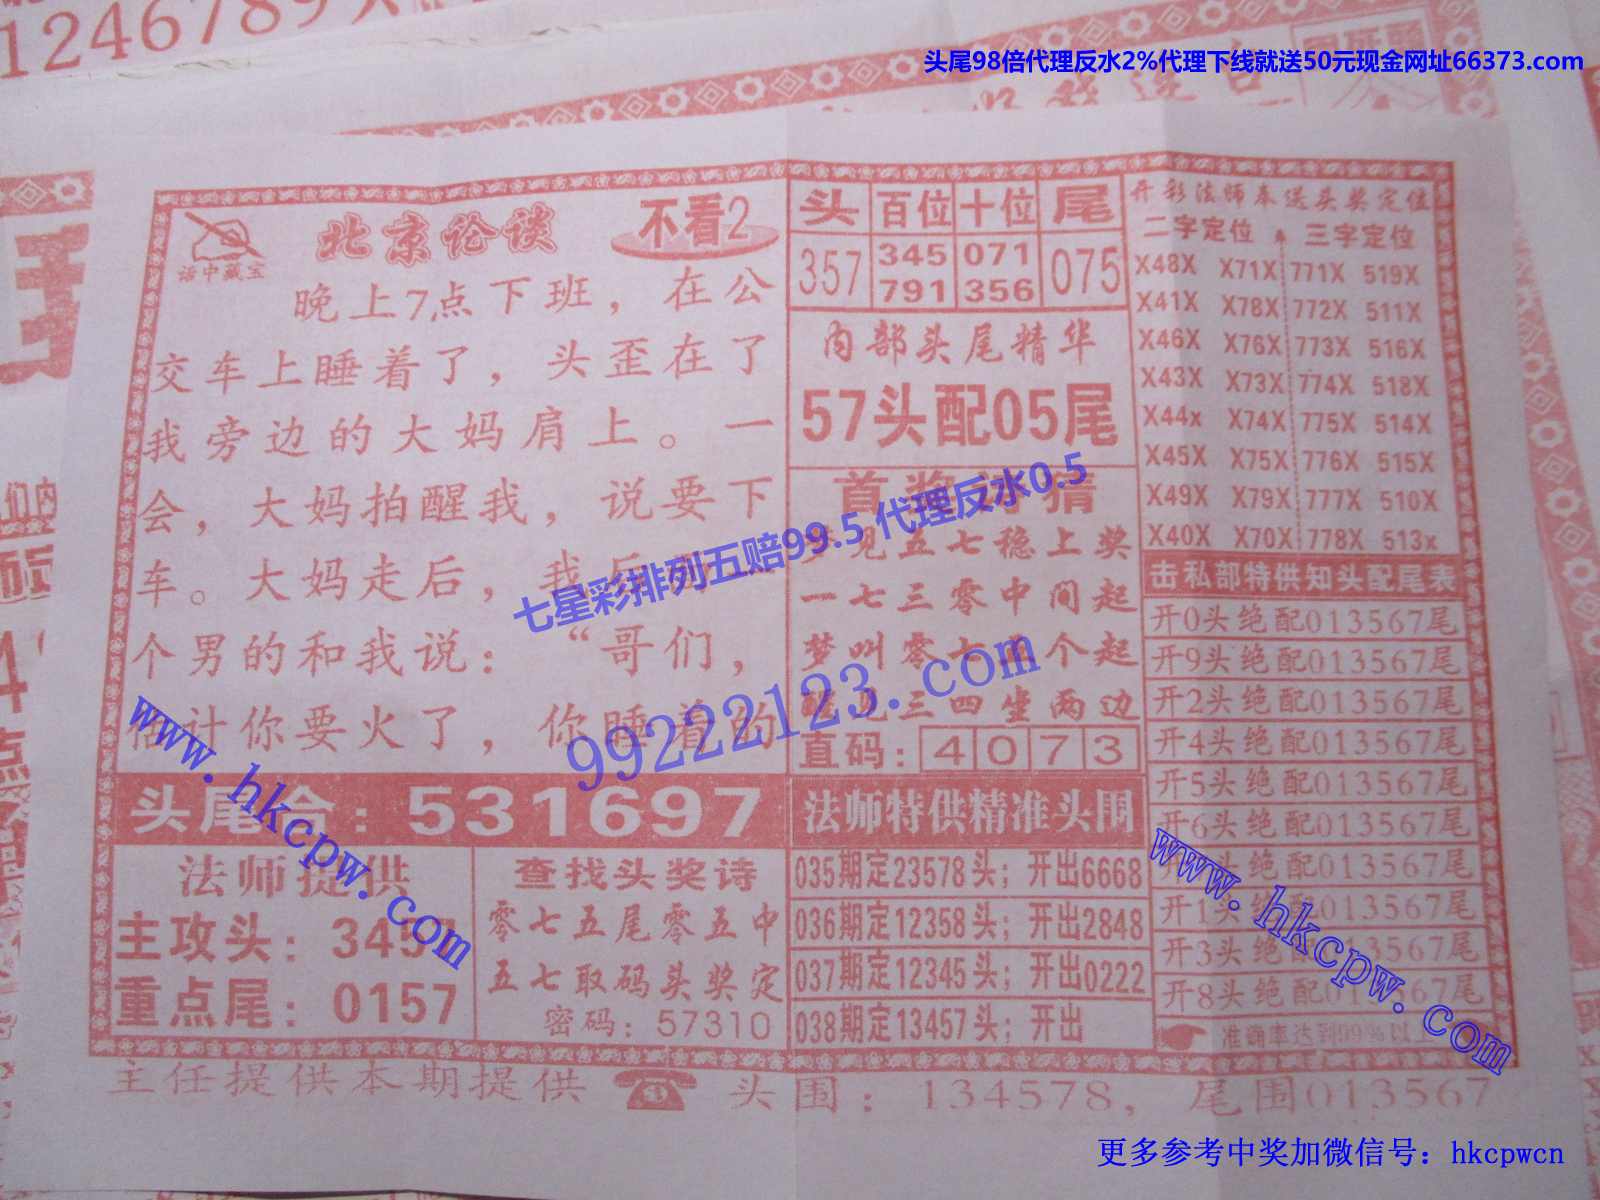 1246789
头尾98倍代理反水2%代理下线就送50元现金网址66373.com
话中藏宝
北京论谈
不看2
晚上7点下班，在公
交车上睡着了，头歪在了
我旁边的大妈肩上。一
会，大妈拍醒我，说要下
车。大妈走后，我后
个男的和我说：“哥们，
估计你要火了，你睡着的
头尾合：531697
法师提供
主攻头：3457
重点尾：0157
查找头奖诗
零七五尾零五中
五七取码头奖定
密码：57310
头 百位 十位 尾
357 345 071 075
791 356
内部头尾精华
57头配05尾
首奖 猜
梦见五七稳上奖
一七三零中间起
梦叫零七两个起
三四坐两边
直码：4073
法师特供精准头围
035期定23578头；开出6668
036期定12358头；开出2848
037期定12345头；开出0222
038期定13457头；开出
开彩法师奉送头奖定位
二字定位 三字定位
X48X X71X 771X 519X
X41X X78X 772X 511X
X46X X76X 773X 516X
X43X X73X 774X 518X
X44x X74X 775X 514X
X45X X75X 776X 515X
X49X X79X 777X 510X
X40X X70X 778X 513x
击私部特供知头配尾表
开0头绝配013567尾
开9头绝配013567尾
开2头绝配013567尾
开4头绝配013567尾
开5头绝配013567尾
开6头绝配013567尾
头绝配013567尾
开1头绝配013567尾
开3头绝配013567尾
开8头绝配013567尾
准确率达到99%以上
主任提供本期提供 头围：134578，尾围013567
七星彩排列五赔99.5 代理反水0.5
99222123.com
www.hkcpw.com
www.hkcpw.com
更多参考中奖加微信号：hkcpwcn